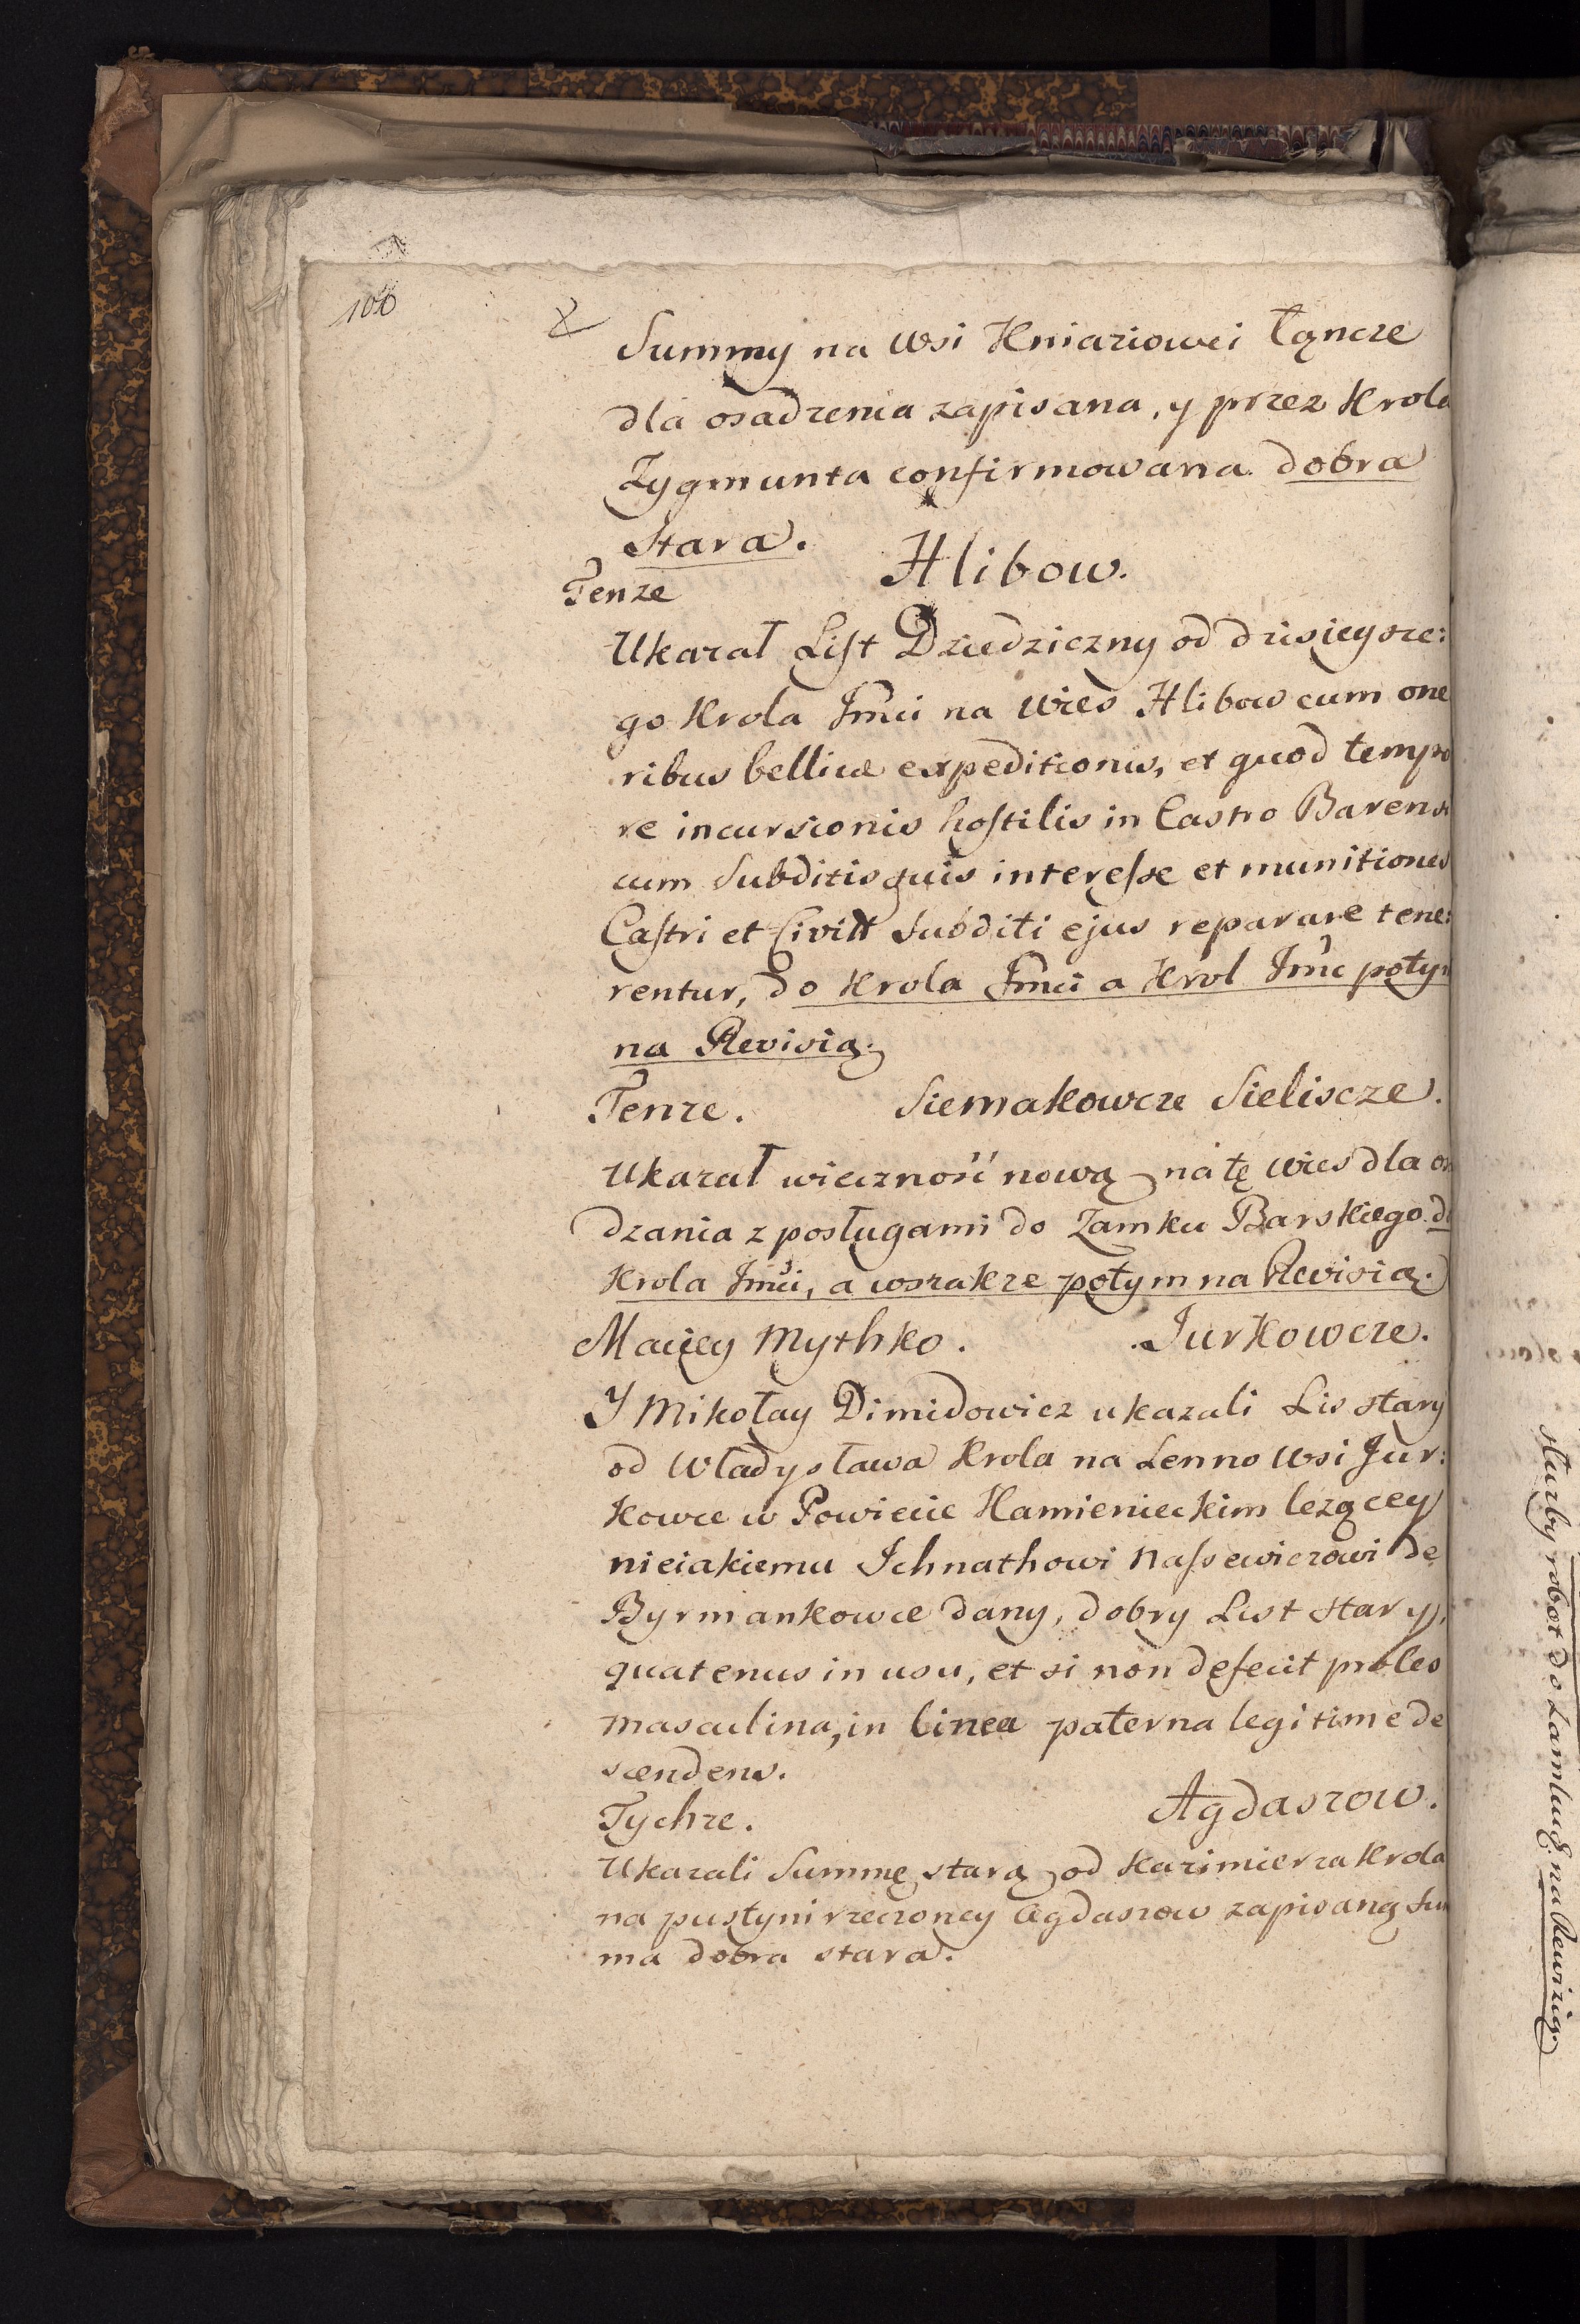 100
Summy na wsi Kniaziowei Łąncze
dla osadzenia zapisana, y przez Krola
Zygmunta confirmowana dobra
stara.
Hlibow.
Tenze
Ukazał List Dziedziczny od dzisieysze:
go Krola Jmći na wies Hlibow cum one
ribus bellicæ expeditionis, et quod tempo
re incursionis hostilis in Castro Barens
cum Subditis suis interesse et munitiones
Castri et Civitt Subditi ejus reparare tene:
rentur, do Krola Jmći a Krol Jmć potym
na Revisią.
Tenze. Siemakowcze Sieliscze.
Ukazał wieczność nową na tę wies dla os
dzania z posługami do Zamku Barskiego do
Krola Jmći, a wszakze potym na Revisią.
Maciey Mythko. Jurkowcze.
Y Mikołay Dimidowicz ukazali Lis stary
od Władysława Krola na Lenno wsi Jur:
kowce w Powiecie Kamienieckim lezącey
nieiakiemu Ichnathowi Nassewiczowi de
Byrmankowce dany, dobry List stary,
quatenus in usu, et si non defecit proles
masculina, in linea paterna legitime de
scendens.
Agdaszow.
Tychze.
Ukazali Summę starą od Kazimierza Krola
na pustyni rzeczoney Agdaszow zapisaną Sum
ma dobra stara.
służby robot do Zamku na Rewizią.